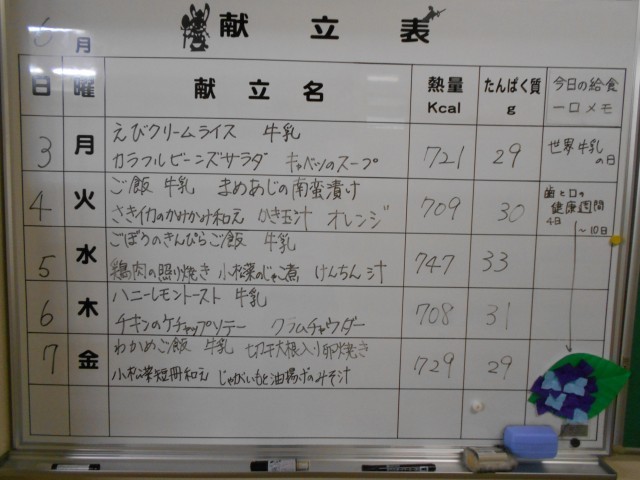 6月 献立表
日 曜 献立名 熱量 Kcal たんぱく質 g 今日の給食 一口メモ
3 月 えびクリームライス 牛乳
カラフルビーンズサラダ キャベツのスープ 721 29 世界牛乳の日
4 火 ご飯 牛乳 まめあじの南蛮漬け
さきイカのかみかみ和え かき玉汁 オレンジ 709 30 歯と口の健康週間 4日~10日
5 水 ごぼうのきんぴらご飯 牛乳
鶏肉の照り焼き 小松菜のじゃこ煮 けんちん汁 747 33
6 木 ハニーレモントースト 牛乳
チキンのケチャップソテー クラムチャウダー 708 31
7 金 わかめご飯 牛乳 切干大根入り卵焼き
小松菜短冊和え じゃがいもと油揚げのみそ汁 729 29